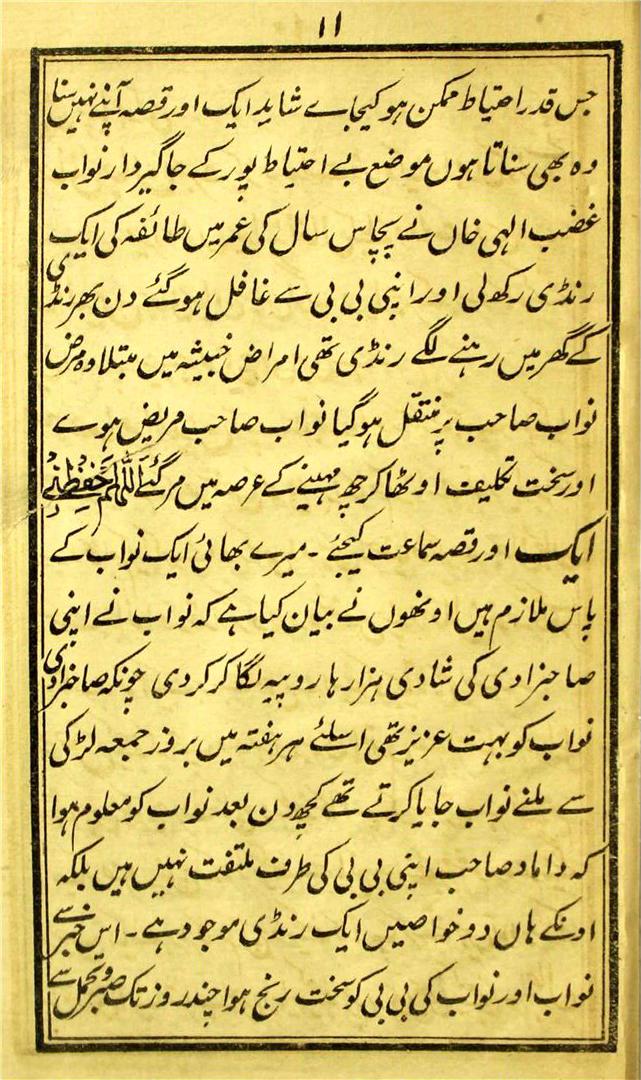 ۱۱
جس قدر احتیاط ممکن ہو کیجاے شاید ایک اور قصہ آپنے نہیں سنا
وہ بھی سناتا ہوں موضع بے احتیاط پور کے جاگیردار نواب
غضب الہی خاں نے پچاس سال کی عمر میں طائفہ کی ایک
رنڈی رکھ لی اور اپنی بی بی سے غافل ہو گئے دن بھر رنڈی
کے گھر میں رہنے لگے رنڈی تھی امراض خبیثہ میں مبتلا وہ مرض
نواب صاحب پر منتقل ہو گیا نواب صاحب مریض ہوے
اور سخت تکلیف اوٹھا کر چھ مہینے کے عرصہ میں مر گئے اَللّٰہُمَّ احْفَظْنِیْ
ایک اور قصہ سماعت کیجئے ۔ میرے بھائی ایک نواب کے
پاس ملازم ہیں اونھوں نے بیان کیا ہے کہ نواب نے اپنی
صاحبزادی کی شادی ہزارہا روپیہ لگا کر کر دی چونکہ صاحبزادی
نواب کو بہت عزیز تھی اسلئے ہر ہفتہ میں بروز جمعہ لڑکی
سے ملنے نواب جایا کرتے تھے کچھ دن بعد نواب کو معلوم ہوا
کہ داماد صاحب اپنی بی بی کی طرف ملتفت نہیں ہیں بلکہ
اونکے ہاں دو خواصیں ایک رنڈی موجود ہے ۔ اس خبر سے
نواب اور نواب کی بی بی کو سخت رنج ہوا چند روز تک صبر و تحمل سے